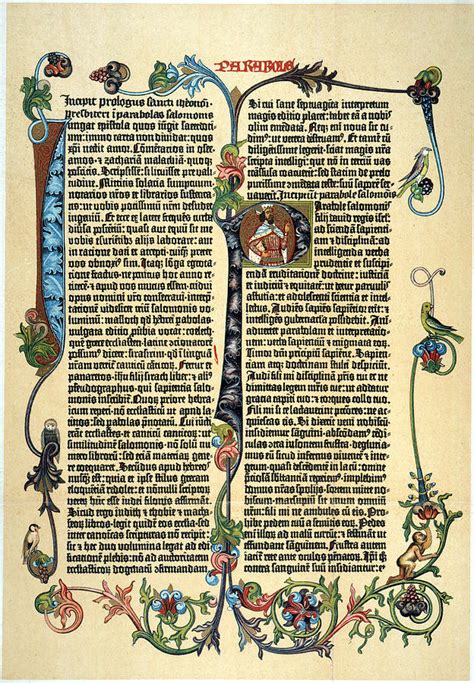 PARABOLE
Incipit prologus sancti iheronimi
presbiteri i parabolas salomonis
iungat epistola quos iugit sacerdotium:
immo carta non dividat: quos
xpi nectit amor. Cōmētarios in osee.
amos. et zachariā malachiā. quoq;
poscitis. Scripsisse: si licuisset pre valitudine.
Mittitis solacia sumptuum.
notarios nr̄os et librarios sustentatis:
ut vobis potissimū nr̄m desudet
ingeniū. Et ecce ex latere frequens turba
diversa poscentiū: quasi aut equū sit me
vobis esurientibz aliis laborare: aut
in ratione dati et accepti. cuiq; preter
vos obnoxi⁹ sim. Itaq; lōga egrotatione
fractus. ne penitus hoc anno reticerē.
et apud vos mutus essem. tridui
opus nomini vr̄o consecravi. interpretationē
videlicet triū salomonis
voluminū: masloth qd hebrei parabolas.
vulgata editio pubia vocat: coeleth.
quē grece ecclesiasten. latine ōcionatorē
possum⁹ dicere: sirasirim. qd ī linguā
nr̄am vertit canticū cāticorū. Fertur et
panaretos. ihu filii sirach liber: et ali⁹
pseudographus. qui sapientia salomonis
inscribit. Quoz priore hebraicum
reperi. nō ecclīasticū ut apud latinos:
sed parabolas p̄notatū. Cui iūcti
erāt ecclesiastes. et canticū canticoz: ut
similitudinē salomonis. nō solū nūero
librorū: sed etiā materiarū genere
coequaret. Secūdus apud hebreos
nusq; est: quia et ipse stilus grecam
eloquētiā redolet: et nōnulli scriptorum
veterū hūc esse iudei filonis affirmant.
Sicut ergo iudith et thobie et machabeorz
libros. legit quidē eos ecclīa. sed
inter canonicas scripturas nō recipit:
sic et hec duo volumina legat ad edificationē
plebis. nō ad auctoritatem
ecclesiasticoz dogmatū ōfirmandam.
Si cui sane septuaginta interpretum
magis editio placet: habet eā a nobis
olim emēdatā. Neq; eni nova sic cudimus:
ut vetera destruam⁹. Et tamē cū
diligētissime legerit. sciat magis nr̄a
scripta intelligi: que nō in tertiū vas
trāsfusa coacuerīt: sed statim de prelo
purissime ōmēdata teste: suū saporē servaverīt.
Incipiūt parabole salomonis
Parabole salomonis
filii david regis isrl:
ad sciendā sapientiam
et disciplinā: ad
intelligenda verba
prudentie et suscipiendā
eruditionē doctrine: iusticiā
et iudiciū et equitatē: ut detur parvulis
astutia: et adolescenti scientia et intellectus.
Audiēs sapiēs sapiētior erit: et
intelligēs gubernacla possidebit. Animadvertet
parabolam et interpretationem:
verba sapientiū et enigmata eoz.
Timor dn̄i principiū sapiētie. Sapientiam
atq; doctrinam stulti despiciūt.
Audi fili mi disciplinā pr̄is tui et ne
dimittas legem mr̄is tue: ut addatur
gratia capiti tuo: et torques collo tuo.
Fili mi si te lactaverīt pctōres: ne acquiescas
eis. Si dixerīt veni nobiscū.
insidiemur sanguini. abscōdam⁹ tēdiculas
ōtra insontem frustra. deglutiam⁹
eū sicud infernus viventē et integrum.
quasi descēdentē in lacū: omnē
preciosā substantiā repiem⁹. implebim⁹
domus nr̄as spoliis. sortem mitte
nobiscum. marsupiū sit unum omniū
nr̄m: fili mi ne ambules cū eis. Prohibe
pedem tuū a semitis eoz. Pedes
eni illoz ad malū currūt: et festināt ut
effundant sanguinem. Frustra autem
iacit rete ante oculos pēnatoz. Ipsi quoq;
contra sanguinē suū insidiantur: et